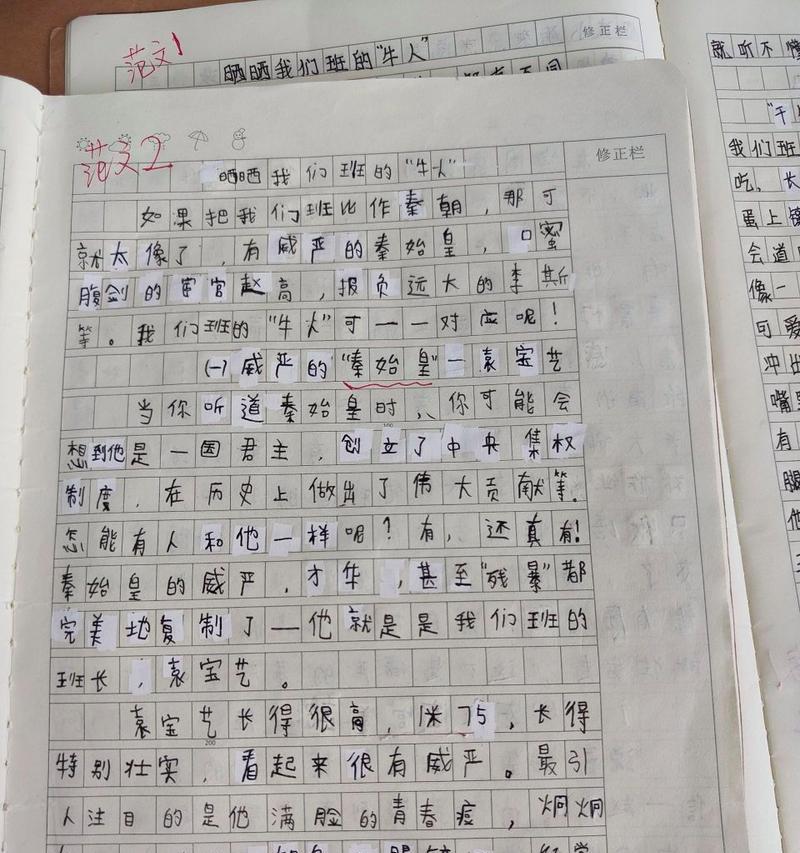 范文1
晒晒我们班的"牛人"
修正栏
范文2
修正栏
晒晒我们班的"牛人"
如果把我们班比作秦朝，那可
就太像了，有威严的秦始皇，口蜜
腹剑的宦官赵高，报负远大的李斯
等。我们班的"牛人"可一一对应呢！
(一)威严的"秦始皇"—袁宝艺
当你听道秦始皇时，你可能会
想到他是一国君主，创立了中央集权
制度，在历史上做出了伟大贡献等。
怎能有人和他一样呢？有，还真有！
秦始皇的威严，才华，甚至"残暴"都
完美地复制了—他就是是我们班的
班长，袁宝艺。
袁宝艺长得很高，1米75，长得
200
特别壮实，看起来很有威严。最引
人注目的是他满脸的青春痘，炯炯
就听不懂
我们班
吃，长
蛋上镶
会道
像一
可爱
冲出
嘴
有
腿
他